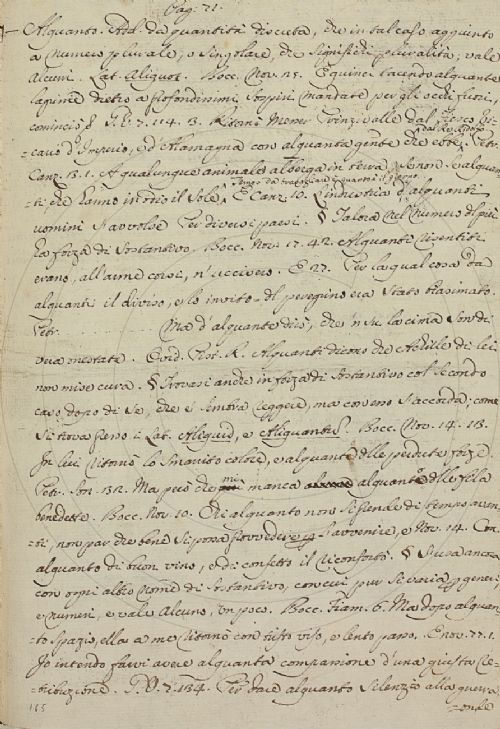 Pag. 21.
Alquanto. Add. da quantità discreta, che in tal caso aggiunto
a numero plurale, o singolare, che significhi pluralità; vale
alcuni. Lat. Aliquot. Bocc. Nov. 25. E quinci tacendo alquante
lagrime dietro a profondissimi sospiri mandate per gli occhi fuori,
cominciò § 7. 114. 3. Ritornò Messer Prinzivalle dal
cario d'Imperio, ed Alamagna con alquanta gente che ebbe dal Re Ridolfo. Petr.
Canz. 13. 1. A qualunque animale alberga in terra, Se non se alquan-
ti, che hanno in odio il Sole, Tempo da travagliare è quanto è il giorno. E Canz. 10. d'alquanti
uomini s'avvolse Per diversi paesi. § Talora nel numero del più
ha forza di sostantivo. Bocc. Nov. 17. 42. Alquanti risentiti
erano, all'arme corsi, n'uccisero. E 27. Per la qual cosa da
alquanti il diviso, e lo invito del peregrino era stato biasimato.
Petr. Ma d'alquante dirò, che 'n su la cima Son di
vera onestate. Ovid. Pist. R. Alquanti dicono che Achille di lei
non mise cura. § Trovasi anche in forza di sostantivo col secondo
caso dopo di se, che si sembra reggere, ma con esso s'accorda; come
si trova presso i Lat. Aliquid, e Aliquantus. Bocc. Nov. 14. 13.
In lui ritornò lo smarrito colore, e alquante delle perdute forze.
Petr. Son. 132. Ma però che mi manca alquanto delle
benedette. Bocc. Nov. 10. Che alquanto non si prende di tempo avan-
ti, non par che bene si possa provvedere per l'avvenire, e Nov. 14. Con
alquanto di buon vino, e di confetto il riconfortò. § Si usa ancora
con ogni altro nome di sostantivo, con cui pur si varia per generi,
e numeri, e vale Alcuno, un poco. Bocc. Fiam. 6. Ma dopo alquan-
to spazio, ella a me ritornò con tristo viso, e lento passo. E nov. 77. 1.
Io intendo farvi avere alquanta compassione d'una giusta re-
tribuzione. 7. 134. Per dare alquanto silenzio alla guerra
onde